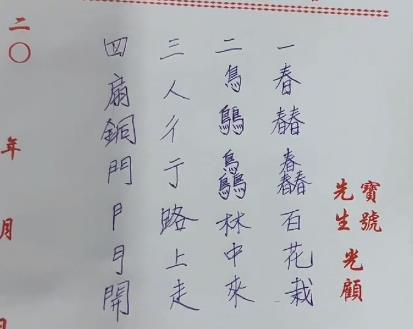 寶號
先生 光顧
一春百花栽
二鳥林中來
三人彳亍路上走
四扇銅門𠁣𠃛開
二〇 年 月